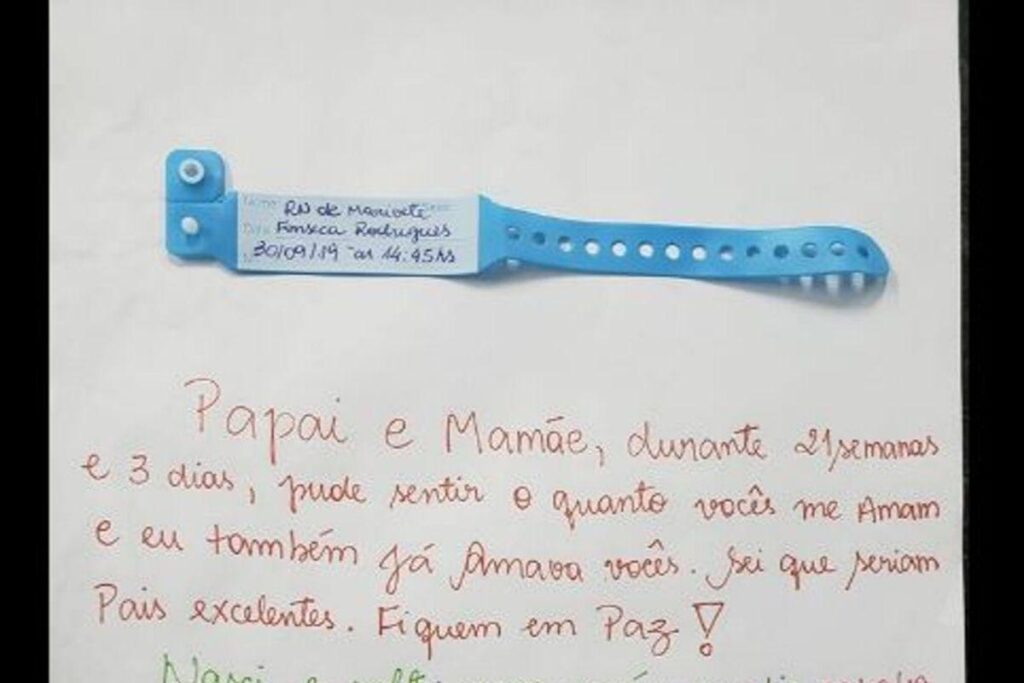 Nome: RN de Marivete
Data Fonseca Rodrigues
30/09/19 às 14:45hs
Papai e Mamãe, durante 21 semanas
e 3 dias, pude sentir o quanto vocês me Amam
e eu também já Amava vocês. Sei que seriam
Pais excelentes. Fiquem em Paz!
Nasci e